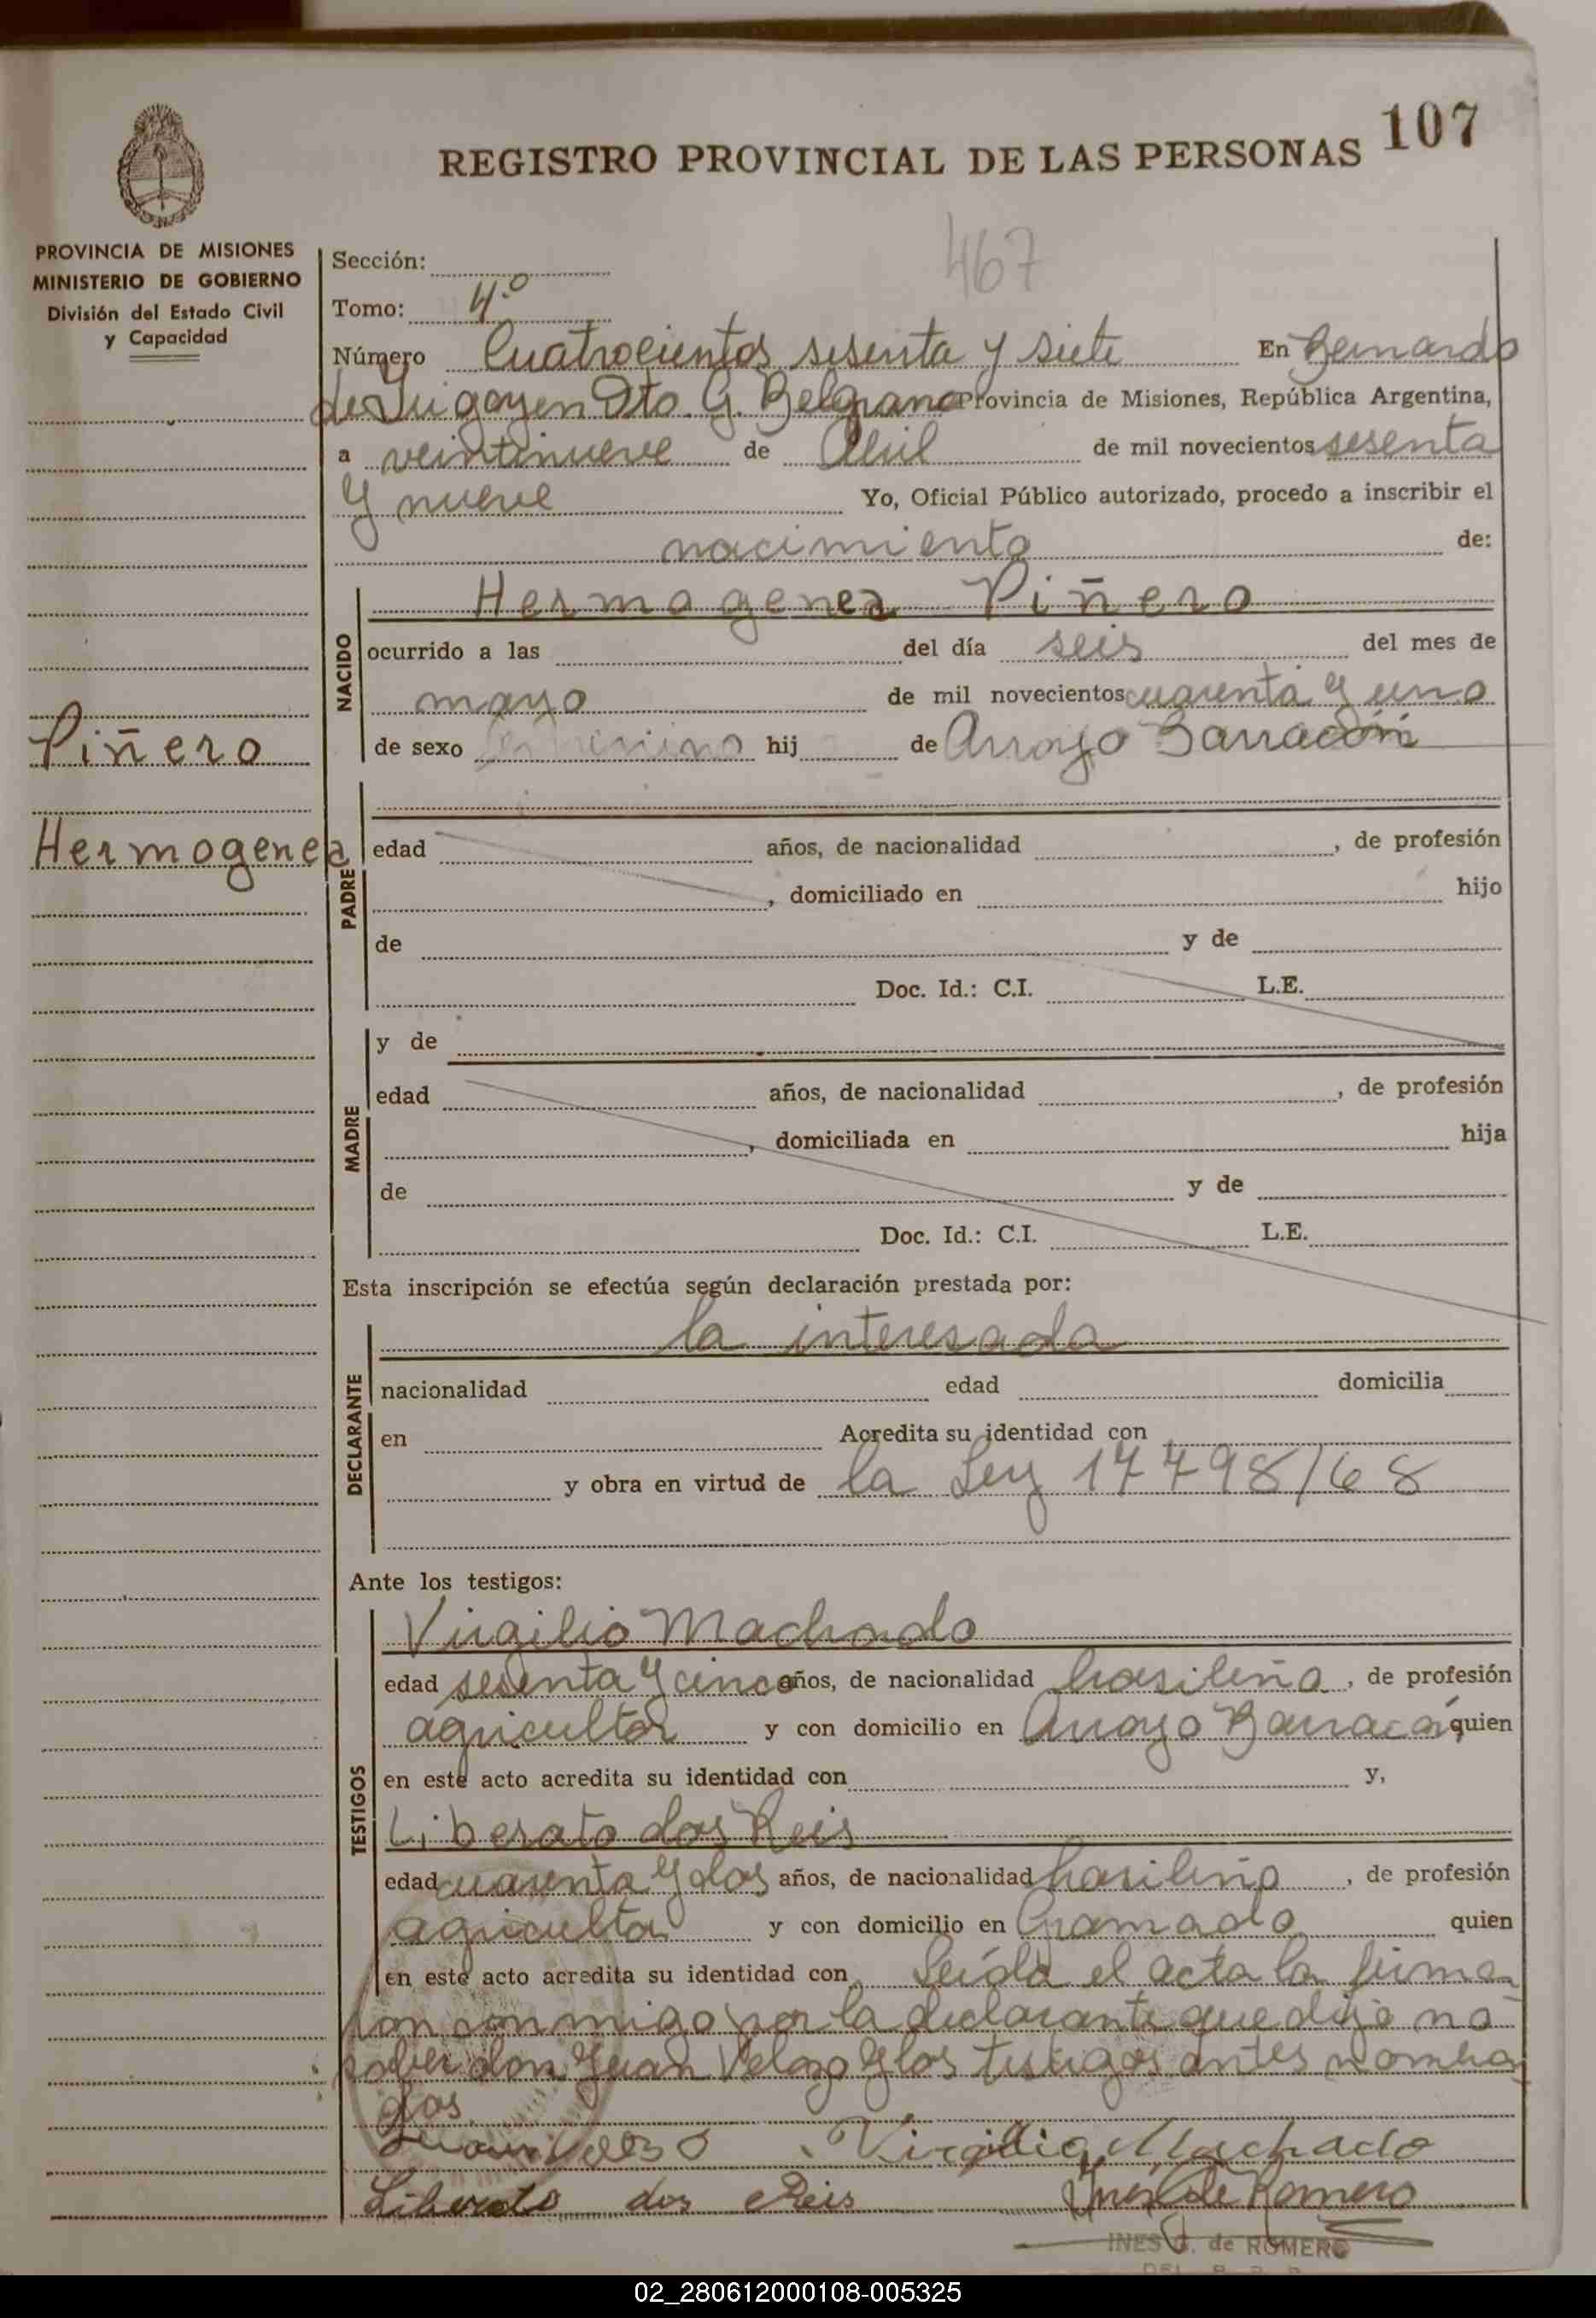 107
REGISTRO PROVINCIAL DE LAS PERSONAS
467
PROVINCIA DE MISIONES
MINISTERIO DE GOBIERNO
División del Estado Civil
y Capacidad
Sección:
Tomo: 4.º
Número Cuatrocientos sesenta y siete En Bernardo
de Irigoyen Dto. G. Belgrano Provincia de Misiones, República Argentina,
a veintinueve de Abril de mil novecientos sesenta
y nueve Yo, Oficial Público autorizado, procedo a inscribir el
nacimiento de:
NACIDO
Hermogenea Piñero
ocurrido a las del día seis del mes de
mayo de mil novecientos cuarenta y uno
de sexo femenino hij de Arroyo Barracón
Piñero
Hermogenea
PADRE
edad años, de nacionalidad , de profesión
, domiciliado en hijo
de y de
Doc. Id.: C.I. L.E.
MADRE
y de
edad años, de nacionalidad , de profesión
, domiciliada en hija
de y de
Doc. Id.: C.I. L.E.
Esta inscripción se efectúa según declaración prestada por:
DECLARANTE
la interesada
nacionalidad edad domicilia
en Acredita su identidad con
y obra en virtud de la Ley 17798/68
Ante los testigos:
TESTIGOS
Virgilio Machado
edad sesenta y cinco años, de nacionalidad brasileña, de profesión
agricultor y con domicilio en Arroyo Barracón, quien
en este acto acredita su identidad con y,
Liberato dos Reis
edad cuarenta y dos años, de nacionalidad brasileña, de profesión
agricultor y con domicilio en Gramado quien
en este acto acredita su identidad con Leída el acta la firma
con migo por la declarante que dijo no
saber don Juan Velozo y los testigos antes nombra
dos.
Juan Virgilio Machado
Liberato dos Reis Inés de Romero
INES G. de ROMERO
02_280612000108-005325